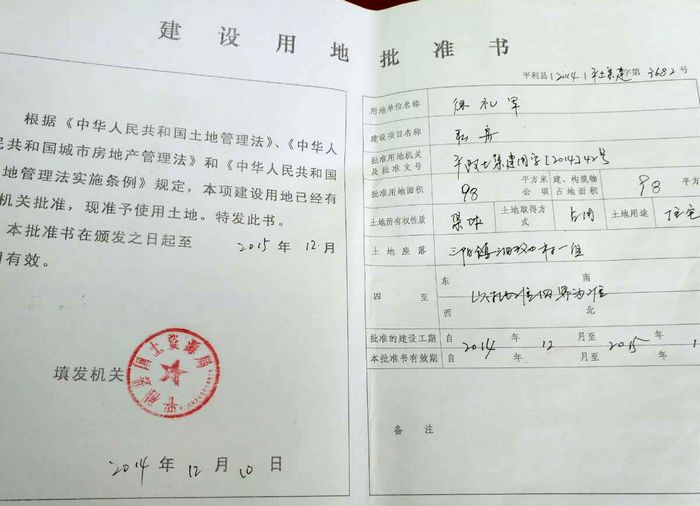 建设用地批准书
根据《中华人民共和国土地管理法》、《中华人
民共和国城市房地产管理法》和《中华人民共和国
地管理法实施条例》规定，本项建设用地已经有
机关批准，现准予使用土地。特发此书。
本批准书在颁发之日起至 2015 年 12 月
有效。
填发机关
平利县国土资源局
2014 年 12 月 10 日
平利县〔2014〕平土集建字第 3682 号
用地单位名称 徐礼军
建设项目名称 私房
批准用地机关及批准文号 平政土集建用字[2014]42号
批准用地面积 98 平方米 公顷 建、构筑物占地面积 98 平方
土地所有权性质 集体 土地取得方式 占用 土地用途 住宅
土地座落 三阳镇 村一组
四至 东 南 西 北
批准的建设工期 自 2014 年 12 月至 2015 年 1
本批准书有效期 自 年 月至 年
备注